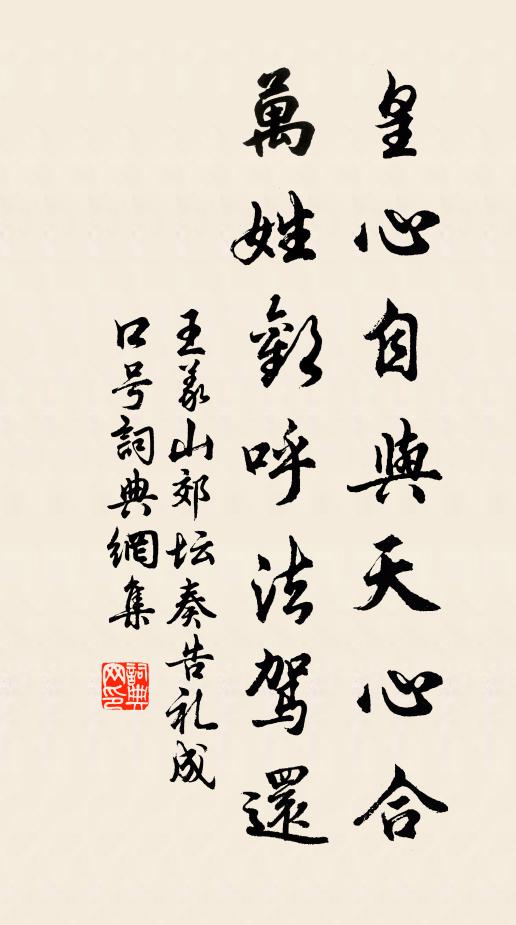 皇心自與天心合
萬姓歡呼法駕還
王義山郊坛奏告礼成
口号詞典網集
詞典網印